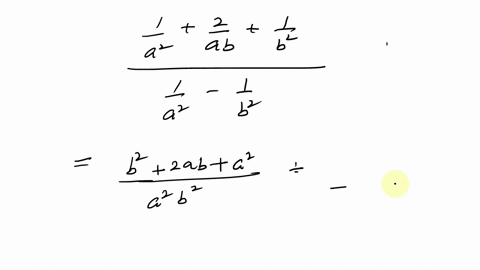 1/a² + 2/ab + 1/b²
1/a² - 1/b²
= b² + 2ab + a² / a² b² ÷ –